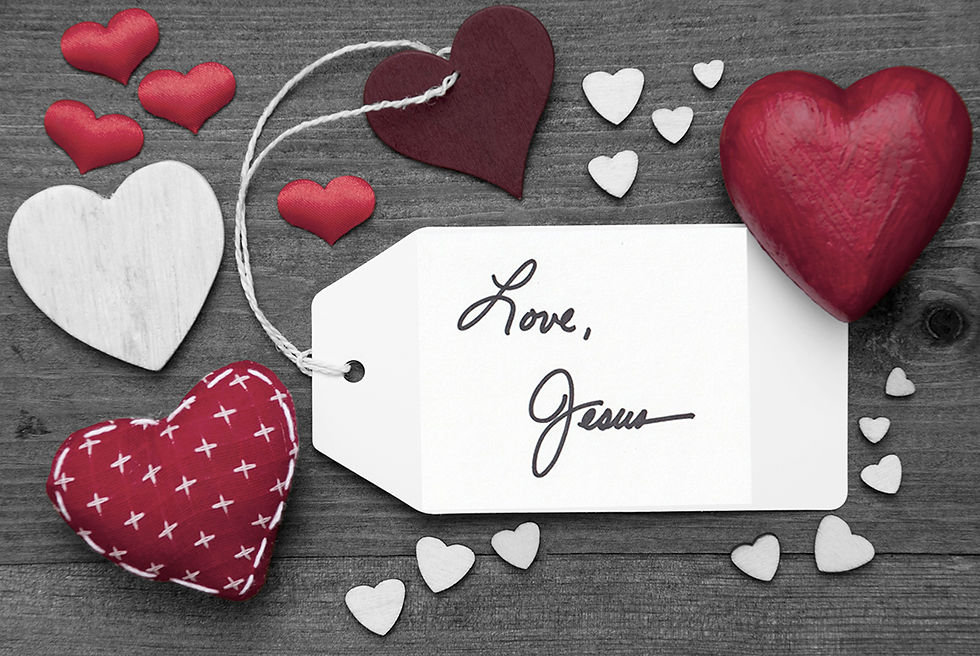 Love,
Jesus